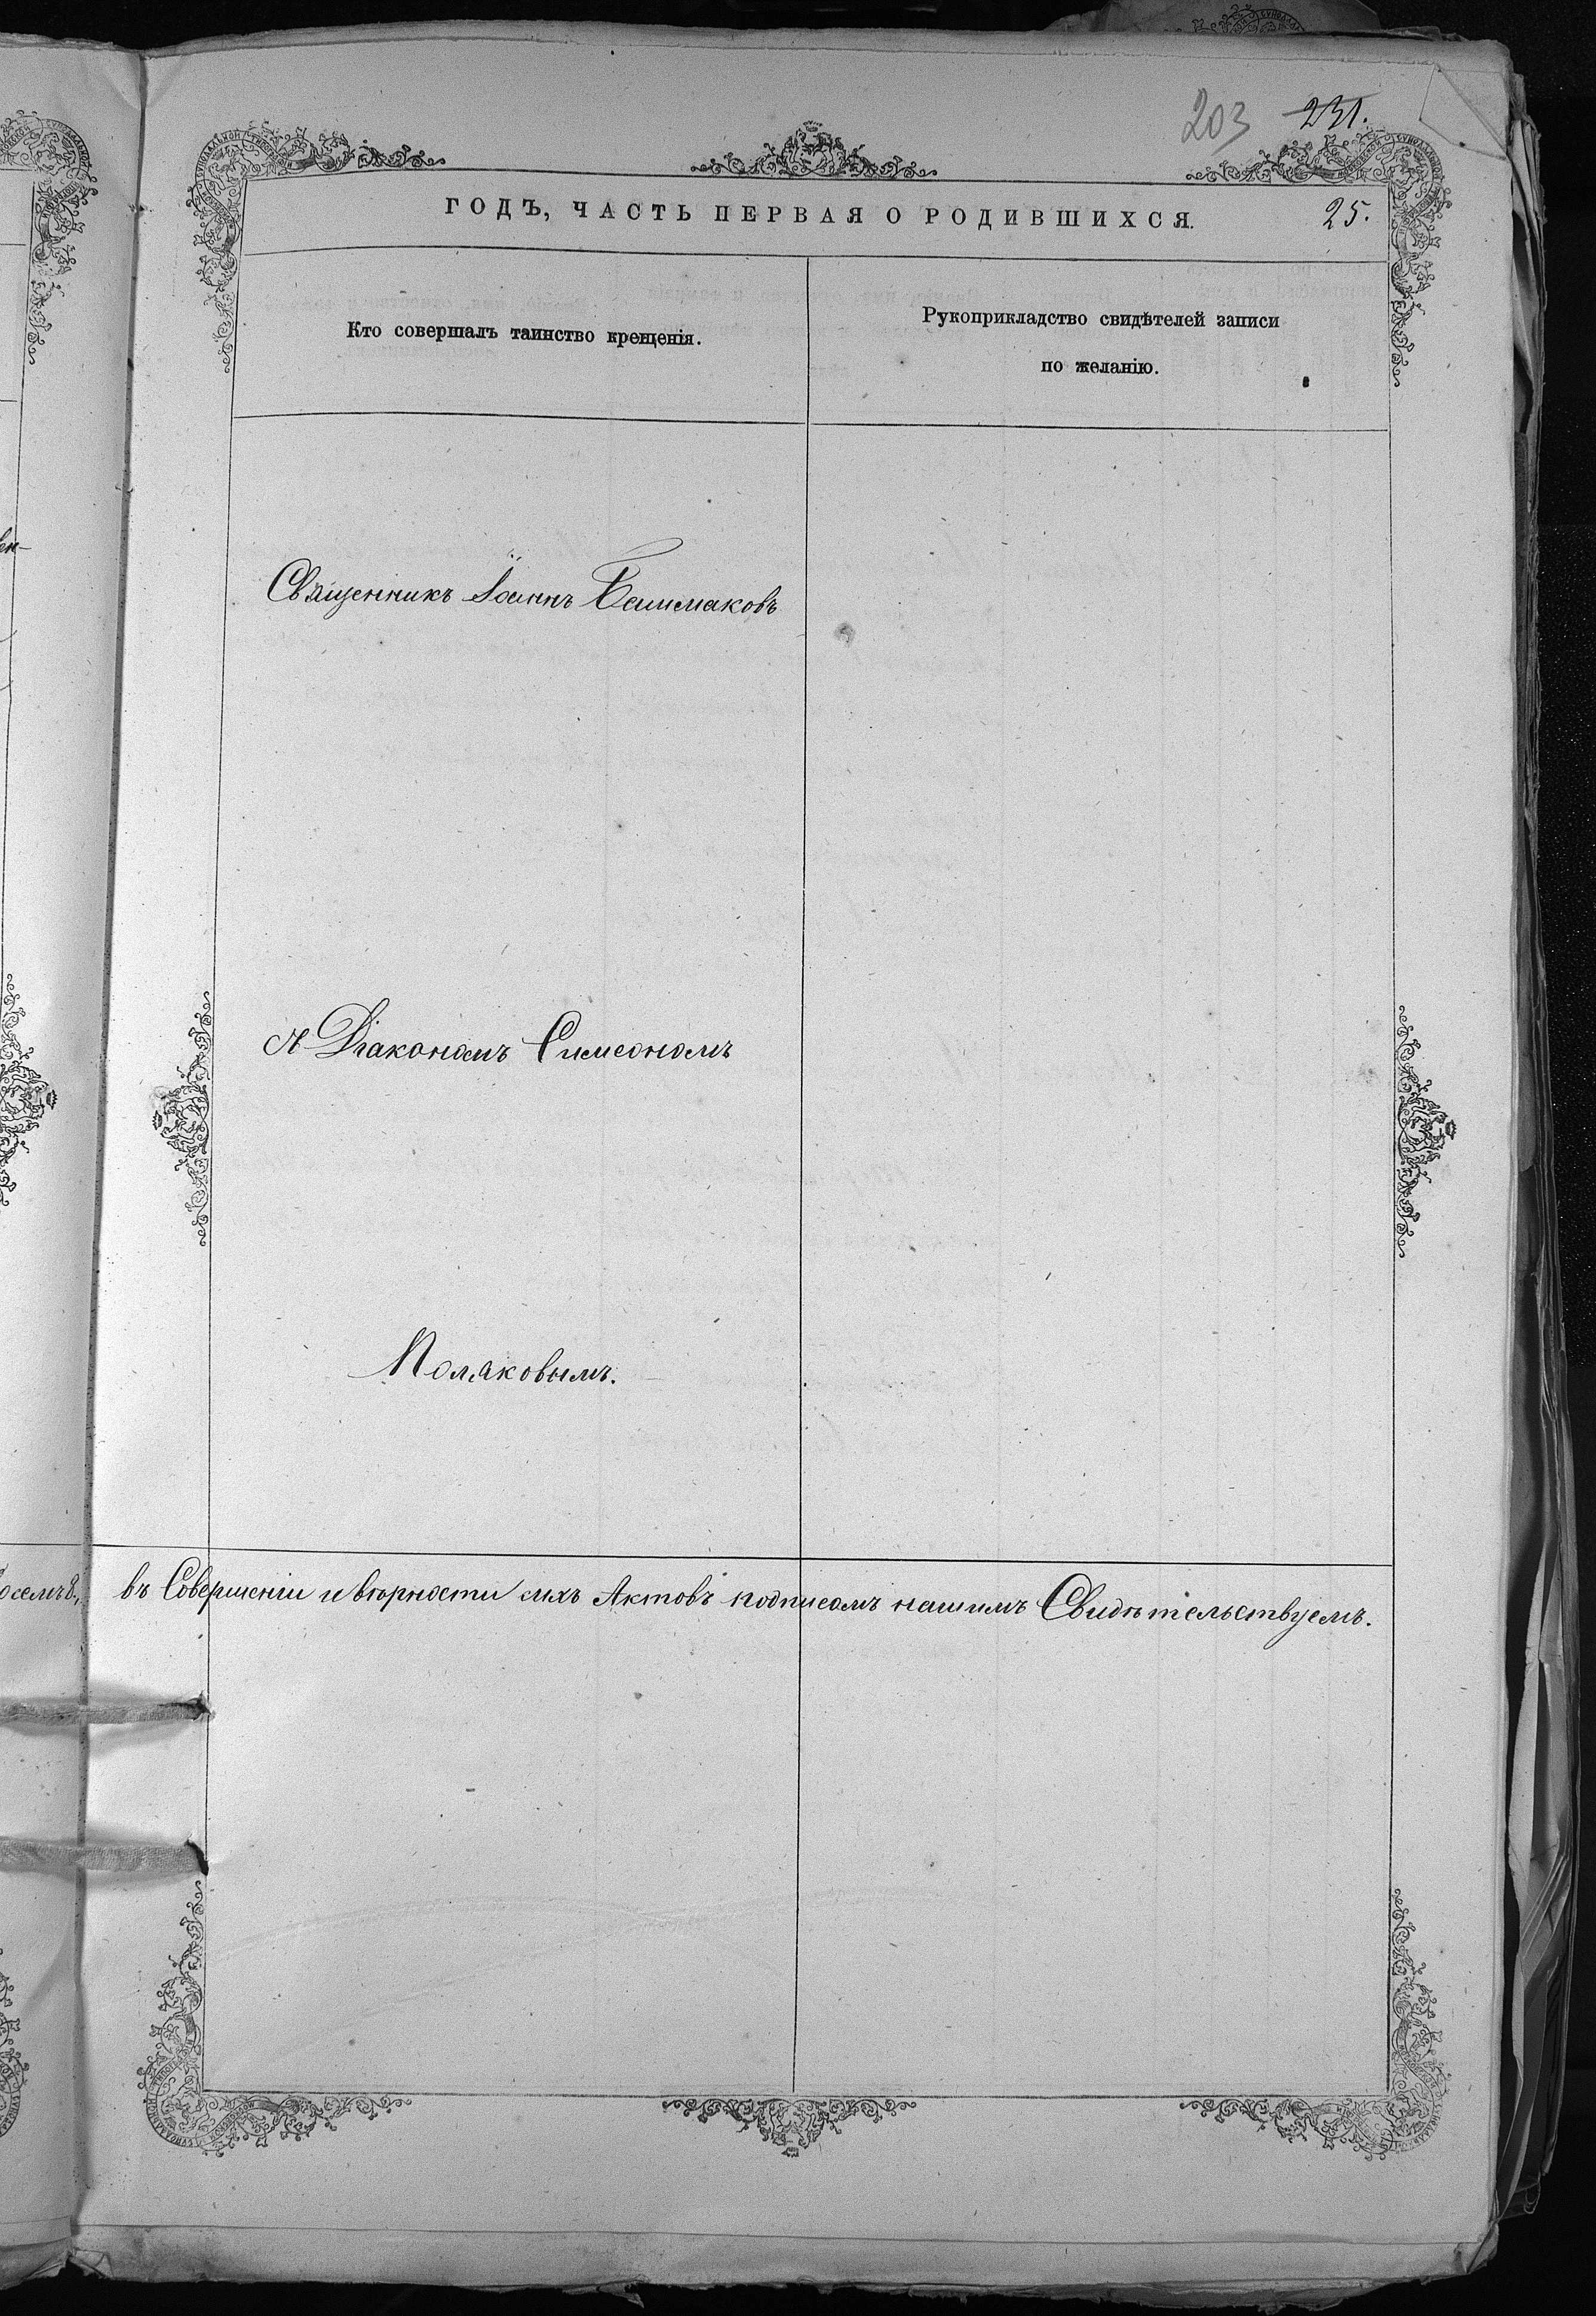 203 231.
ГОДЪ, ЧАСТЬ ПЕРВАЯ О РОДИВШИХСЯ. 25.
Кто совершалъ таинство крещенія.
Рукоприкладство свидѣтелей записи
по желанію.
Священникъ Іоаннъ Башмаковъ
съ Діакономъ Симеономъ
Поляковымъ.
въ Совершеніи и вѣрности сихъ Актовъ подписомъ нашимъ Свидѣтельствуемъ.